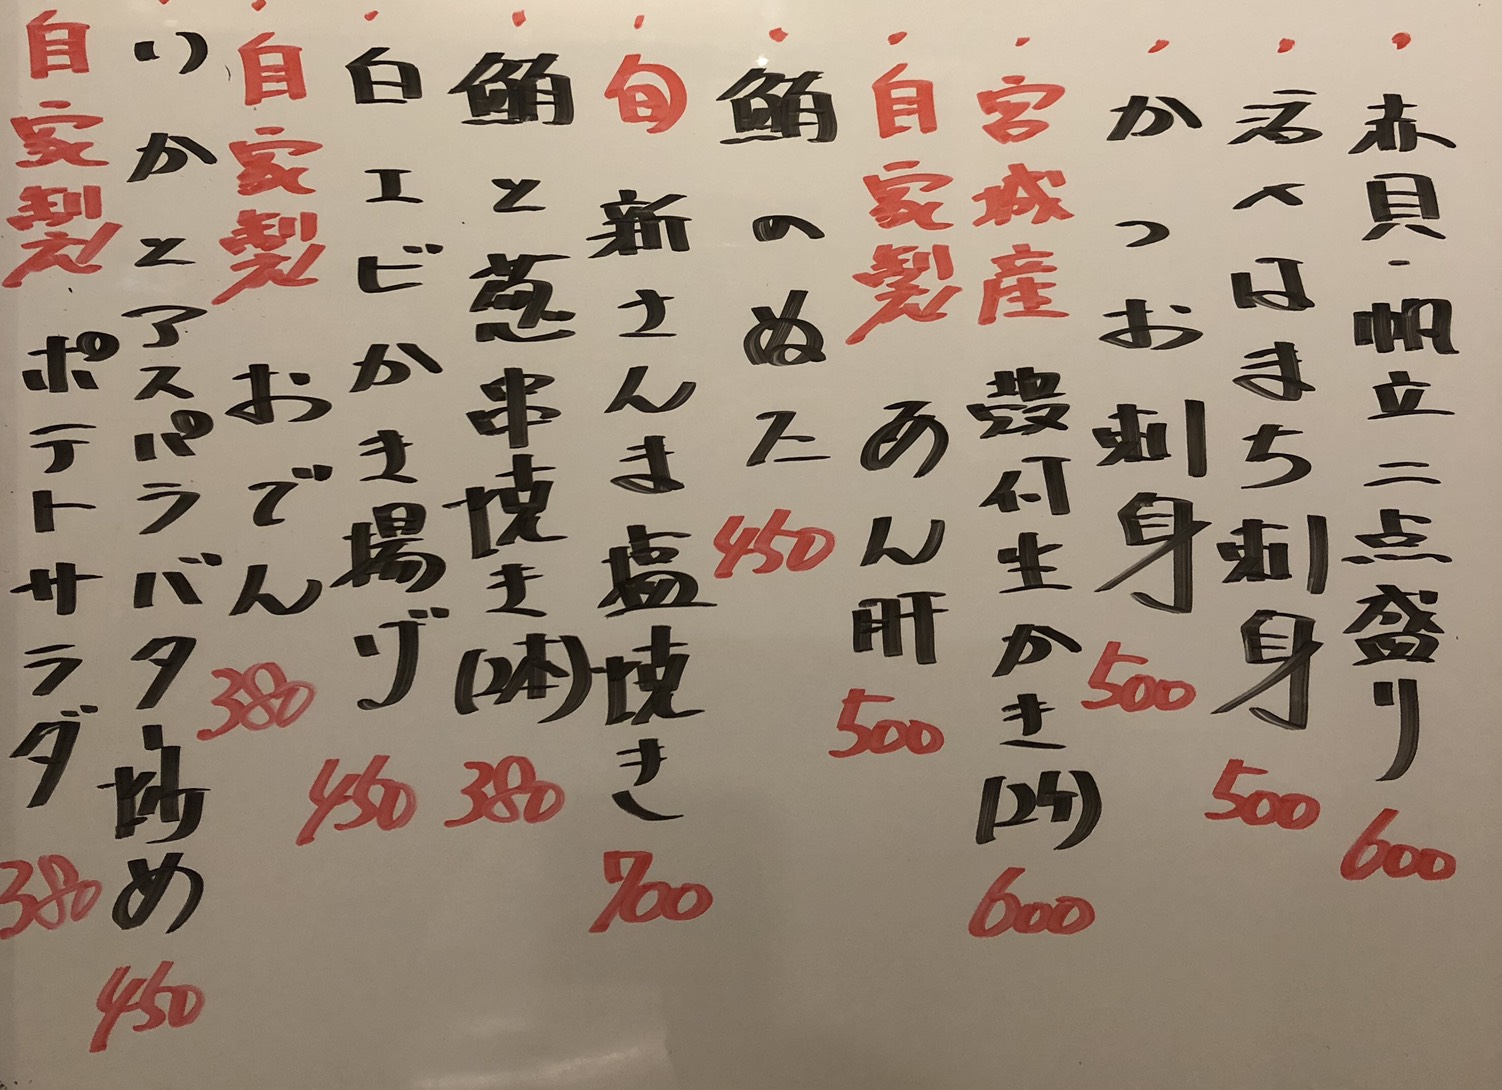 赤貝・帆立 二点盛り 600
活〆はまち刺身 500
かつお刺身 500
宮城産 殻付生かき(2ケ) 600
自家製 あん肝 500
鮪のぬた 450
旬 新さんま塩焼き 700
鮪と葱串焼き(2本) 380
白エビかき揚げ 450
自家製 おでん 380
いかとアスパラバター炒め 450
自家製 ポテトサラダ 380